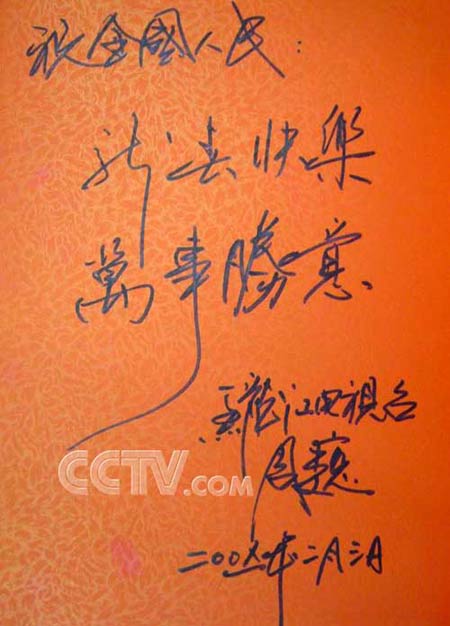 祝全國人民：
新春快樂
萬事勝意
黑龍江电視台
周
二００五年二月三日
CCTV.com